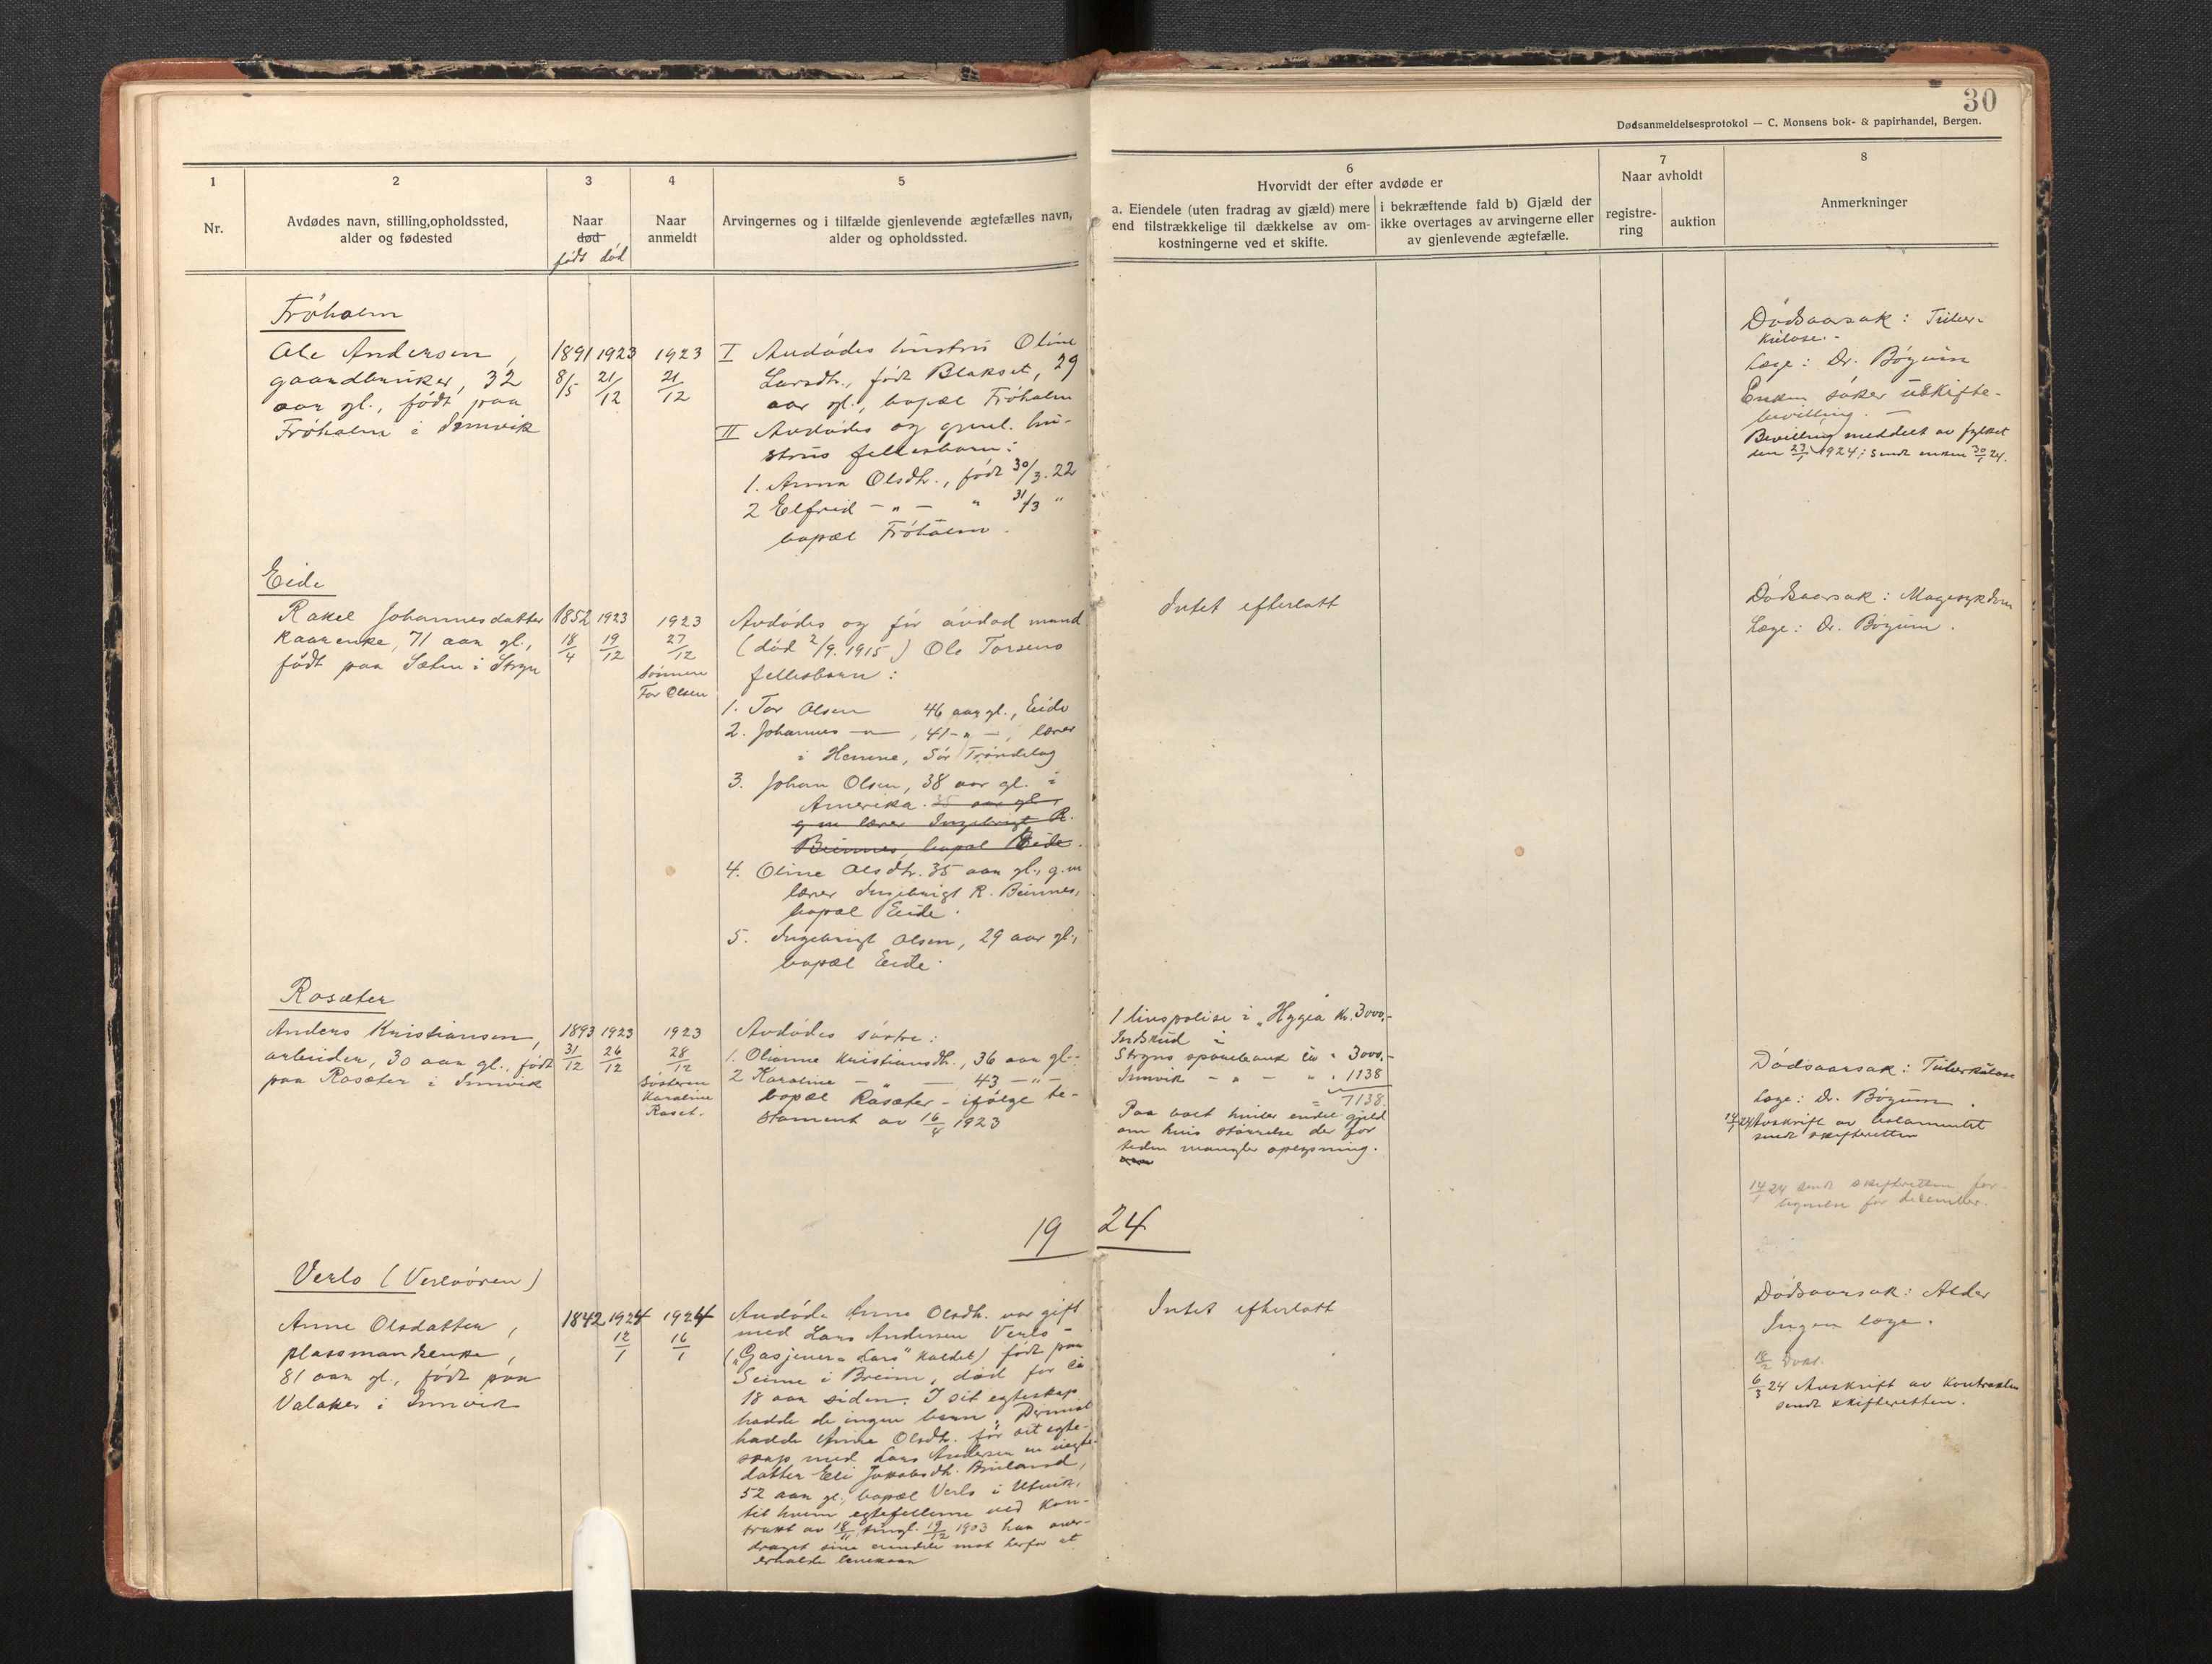 30
Dødsanmeldelsesprotokol — C. Monsens bok- & papirhandel, Bergen.
1
Nr.
2
Avdødes navn, stilling, opholdssted,
alder og fødested
3
Naar
død
født død
4
Naar
anmeldt
5
Arvingernes og i tilfælde gjenlevende ægtefælles navn,
alder og opholdssted.
6
Hvorvidt der efter avdøde er
a. Eiendele (uten fradrag av gjæld) mere
end tilstrækkelige til dækkelse av om-
kostningerne ved et skifte.
i bekræftende fald b) Gjæld der
ikke overtages av arvingerne eller
av gjenlevende ægtefælle.
7
Naar avholdt
registre-
ring
auktion
8
Anmerkninger
Fröholm
Ole Andersen,
gaardbruker, 32
aar gl., født paa
Fröholm i Innvik
1891 1923
8/5 21/12
1923
21/12
I Avdødes hustru Oline
Larsdtr., født Blakset, 29
aar gl., bopæl Fröholm
II Avdødes og gjenl. hu-
strus fellesbarn:
1. Anna Olsdtr., født 30/3.22
2 Elfrid - " - " 31/3 "
bopæl Fröholm.
Dödsaarsak: Tuber-
kulose.
Læge: Dr. Böyum
Enken söker uskifte-
bevilling. —
Bevilling meddelt av fylket
den 23/1 1924; Sendt enken 30/1 24.
Eide
Rakel Johannesdatter
kaarenke, 71 aar gl.,
født paa Sæten i Stryn
1852 1923
18/4 19/12
1923
27/12
Sönnen
Tor Olsen
Avdødes og før avdød mand
(død 2/9.1915) Ole Torsens
fellesbarn:
1. Tor Olsen 46 aar gl., Eide
2. Johannes — " —, 41 - " -, lærer
i Hemne, Sör Tröndelag
3. Johan Olsen, 38 aar gl. i
Amerika. 35 aar gl.,
g.m. lærer Ingebrigt R.
Beinnes, bopæl Eide.
4. Oline Olsdtr. 35 aar gl., g.m
lærer Ingebrigt R. Beinnes,
bopæl Eide.
5. Ingebrigt Olsen, 29 aar gl.,
bopæl Eide.
Intet efterlatt
Dödsaarsak: Magesykdom
Læge: Dr. Böyum.
Rosæter
Anders Kristiansen,
arbeider, 30 aar gl., født
paa Rosæter i Innvik
1893 1923
31/12 26/12
1923
28/12
Sösteren
Karoline
Roset.
Avdødes søstre:
1. Olianne Kristiansdtr., 36 aar gl.
2 Karoline - " - 43 - " -
bopæl Rosæter - ifølge te-
stament av 16/4 1923
1 livspolise i „Hygea kr. 3000.-
Indskud i
Stryns sparebank ca " 3000.-
Innvik - " - " " 1138
= 7138.
Paa boet hviler endel gjeld
om hvis størrelse der for
tiden mangler oplysning.
Dödsaarsak: Tuberkulose
Læge: Dr. Böyum.
14/1 24 Avskrift av testamentet
sendt skifteretten
14/1 24 sendt skifteretten for-
tegnelse for december.
19 24
Verlo (Verlöören)
Anne Olsdatter,
plassmandsenke,
81 aar gl., født paa
Valaker i Innvik
1842 1924
12/1
1924
16/1
Avdøde Anne Olsdtr. var gift
med Lars Andersen Verlo -
født paa
Seime i Breim, død for ca
18 aar siden. I sit egteskap
hadde de ingen barn. Derimot
hadde Anne Olsdtr. før sit egte-
skap med Lars Andersen en uegte
datter Eli Jakobsdtr.
52 aar gl., bopæl Verlo i Utvik,
til hvem egtefellerne ved kon-
trakt av 18/11, tingl. 19/12 1903 har over-
draget sine eiendele mot herfor at
erholde livøraar
Intet efterlatt
Dödsaarsak: Alder
Ingen læge.
18/2
6/3 24 Avskrift av kontrakten
sendt skifteretten.